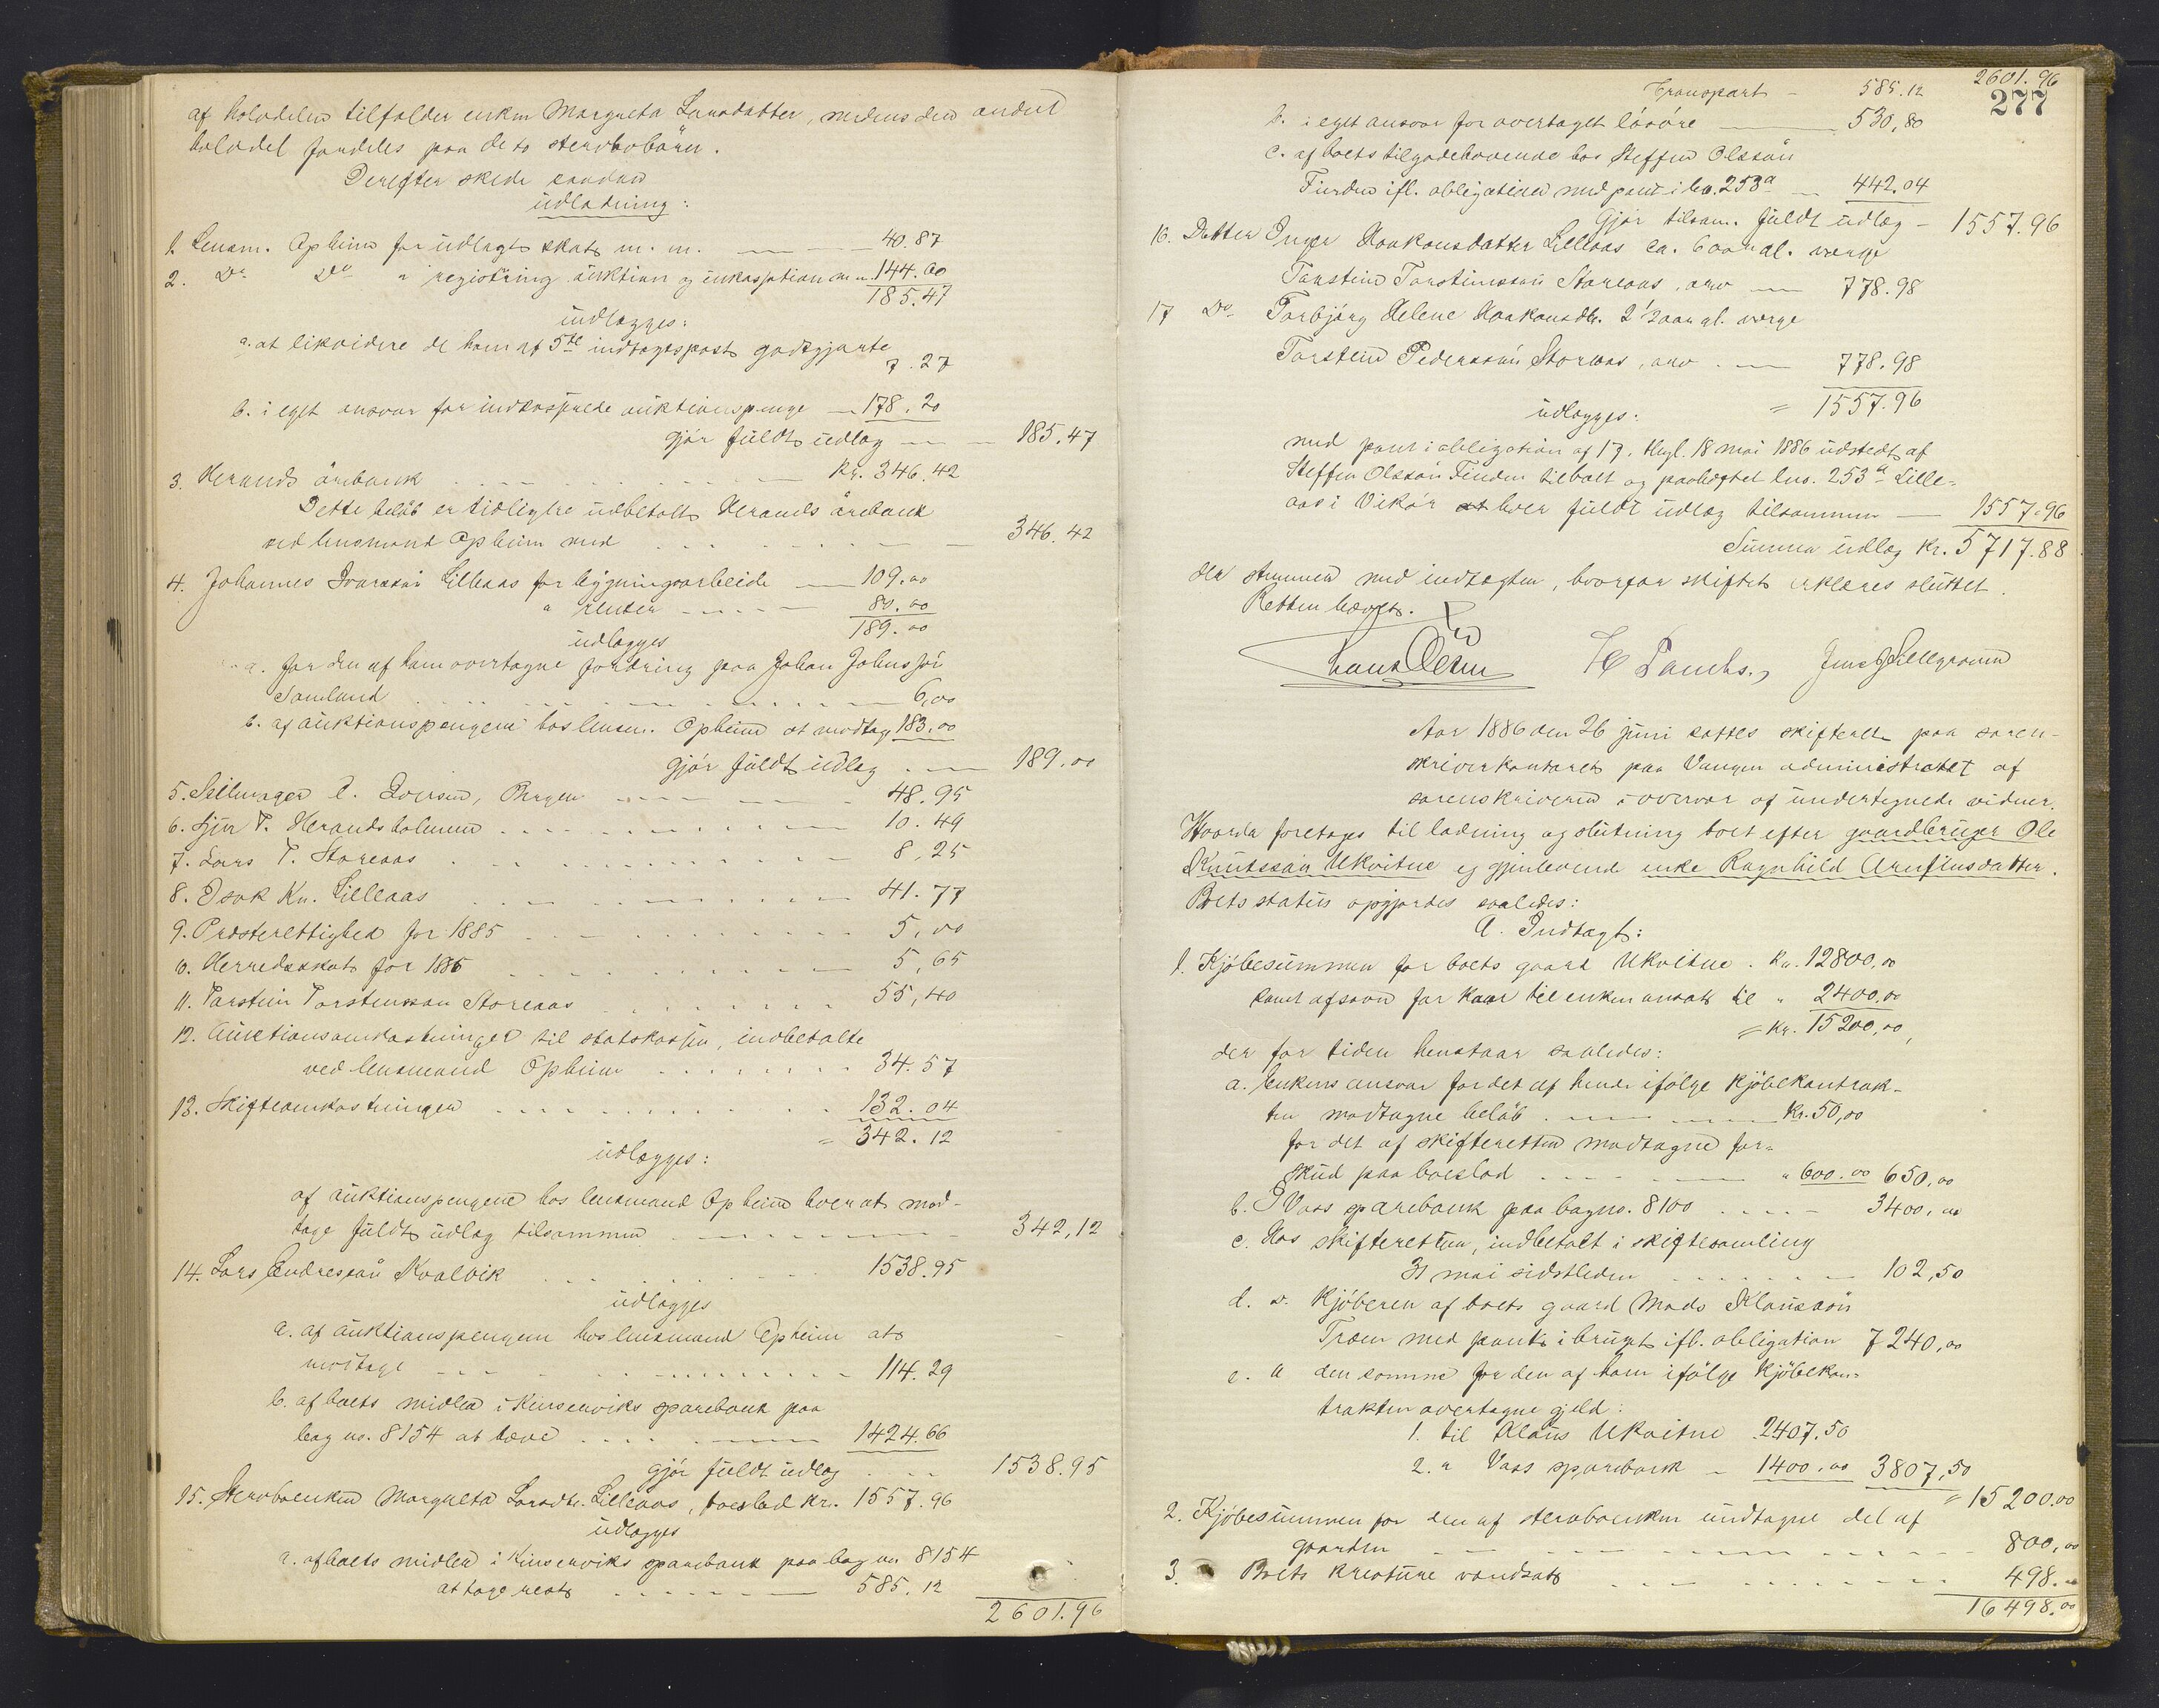 af holvdelen tilfalder enken Margreta Larsdatter, medens den anden
halvdel fordeles paa de to stervbobørn.
Derefter skede saadan
udlodning:
1. Lensm. Opheim for udlagt skat m. m. 40.87
2. Do Do " registrering auktion og inkassation m. m. 144.60
185.47
udlægges:
a. at likvidere de ham af 5te indtægtspost godtgjorte
7.27
b. i eget ansvar for indkasserede auktionspenge 178.20
gjør fuldt udlæg 185.47
3. Herands årebank Kr. 346.42
Dette beløb er tidligere udbetalt Herands årebank
ved lensmand Opheim med 346.42
4. Johannes Ivarssøn Lilleaas for bygningsarbeide 109.00
" renter 80.00
189.00
udlægges
a. for den af ham overtagne fordring paa Johan Johns søn
Samland 6,00
b. af auktionspengene hos lensm. Opheim at modtage 183.00
gjør fuldt udlæg 189.00
5. Seilmager C. Iversen, Bergen 48.95
6. Sjur T. Herandsholmen 10.49
7. Lars T. Storeaas 8,25
8. Isak Kn. Lilleaas 41.77
9. Presterettighed for 1885 5,00
10. Herredsskat for 1885 5,65
11. Torstein Torsteinsson Storeaas 55,40
12. Auktionsomkostninger til statskassen, indbetalte
ved lensmand Opheim 34.57
13. Skifteomkostninger 132.04
= 342.12
udlægges:
af auktionspengene hos lensmand Opheim hver at mod-
tage fuldt udlæg tilsammen 342,12
14. Lars Endressøn Kvalvik 1538.95
udlægges
a. af auktionspengene hos lensmand Opheim at
modtage 114.29
b. af boets midler i Kinserviks sparebank paa
bog no. 8154 at hæve 1424.66
gjør fuldt udlæg 1538.95
15. Stervboenken Margreta Larsdtr. Lilleaas, boeslod kr. 1557.96
udlægges
a. af boets midler i Kinserviks sparebank paa bog no 8154
at tage rest 585.12
2601.96
2601.96
277
Transport 585.12
b. i eget ansvar for overtaget løsøre 530,80
c. af boets tilgodehavende hos Steffen Olssøn
Finden ifl. obligation med pant i lno. 253a 442.04
Gjør tilsam. fuldt udlæg 1557.96
16. Datter Inger Haakonsdatter Lilleaas ca. 6 aar gl. værge
Torstein Torsteinssøn Storeaas, arv 778.98
17 Do. Torbjørg Helene Haakonsdtr. 2 1/2 aar gl. værge
Torstein Pederssøn Storeaas, arv 778.98
= 1557.96
udlægges:
med pant i obligation af 17. thgl. 18 mai 1886 udstedt af
Steffen Olssøn Finden tilholt og paahæftet lno. 253a Lille-
aas i Vikør hver fuldt udlæg tilsammen 1557.96
Summa udlæg Kr. 5717.88
der stemmer med indtægten, hvorfor skiftet erklæres sluttet.
Retten hævet.
Aar 1886 den 26 juni sattes skifteret paa soren-
skriverkontoret paa Vangen administreret af
sorenskriveren i overvær af undertegnede vidner.
Hvorda foretages til lodning og slutning boet efter gaardbruger Ole
Knutssøn Ukvitne og gjenlevende enke Ragnhild Arnfinsdatter.
Boets status opgjordes saaledes:
A. Indtægt:
1. Kjøbesummen for boets gaard Ukvitne. Kr. 12800,00
samt afsavn for kaar til enken ansat til " 2400.00
= Kr. 15200,00,
der for tiden henstaar saaledes:
a. Enkens ansvar for det af hende ifølge kjøbekontrak-
ten modtagne beløb Kr. 50,00
for det af skifteretten modtagne for-
skud paa boeslod " 600.00 650,00
b. I Voss sparebank paa bog no. 8100 3400,00
c. Hos skifteretten, indbetalt i skiftesamling
31 mai sidstleden 102,50
d. " Kjøberen af boets gaard Mads Klaussøn
Træen med pant i bruget ifl. obligation 7240,00
e. " den samme for den af ham ifølge kjøbekon-
trakten overtagne gjeld:
1. til Klaus Ukvitne 2407.50
2. " Voss sparebank 1400.00 3807,50
= 15200.00
2. Kjøbesummen for den af stervboenken undtagne del af
gaarden 800,00
3. Boets kreature vandsat 498.00
16498.00